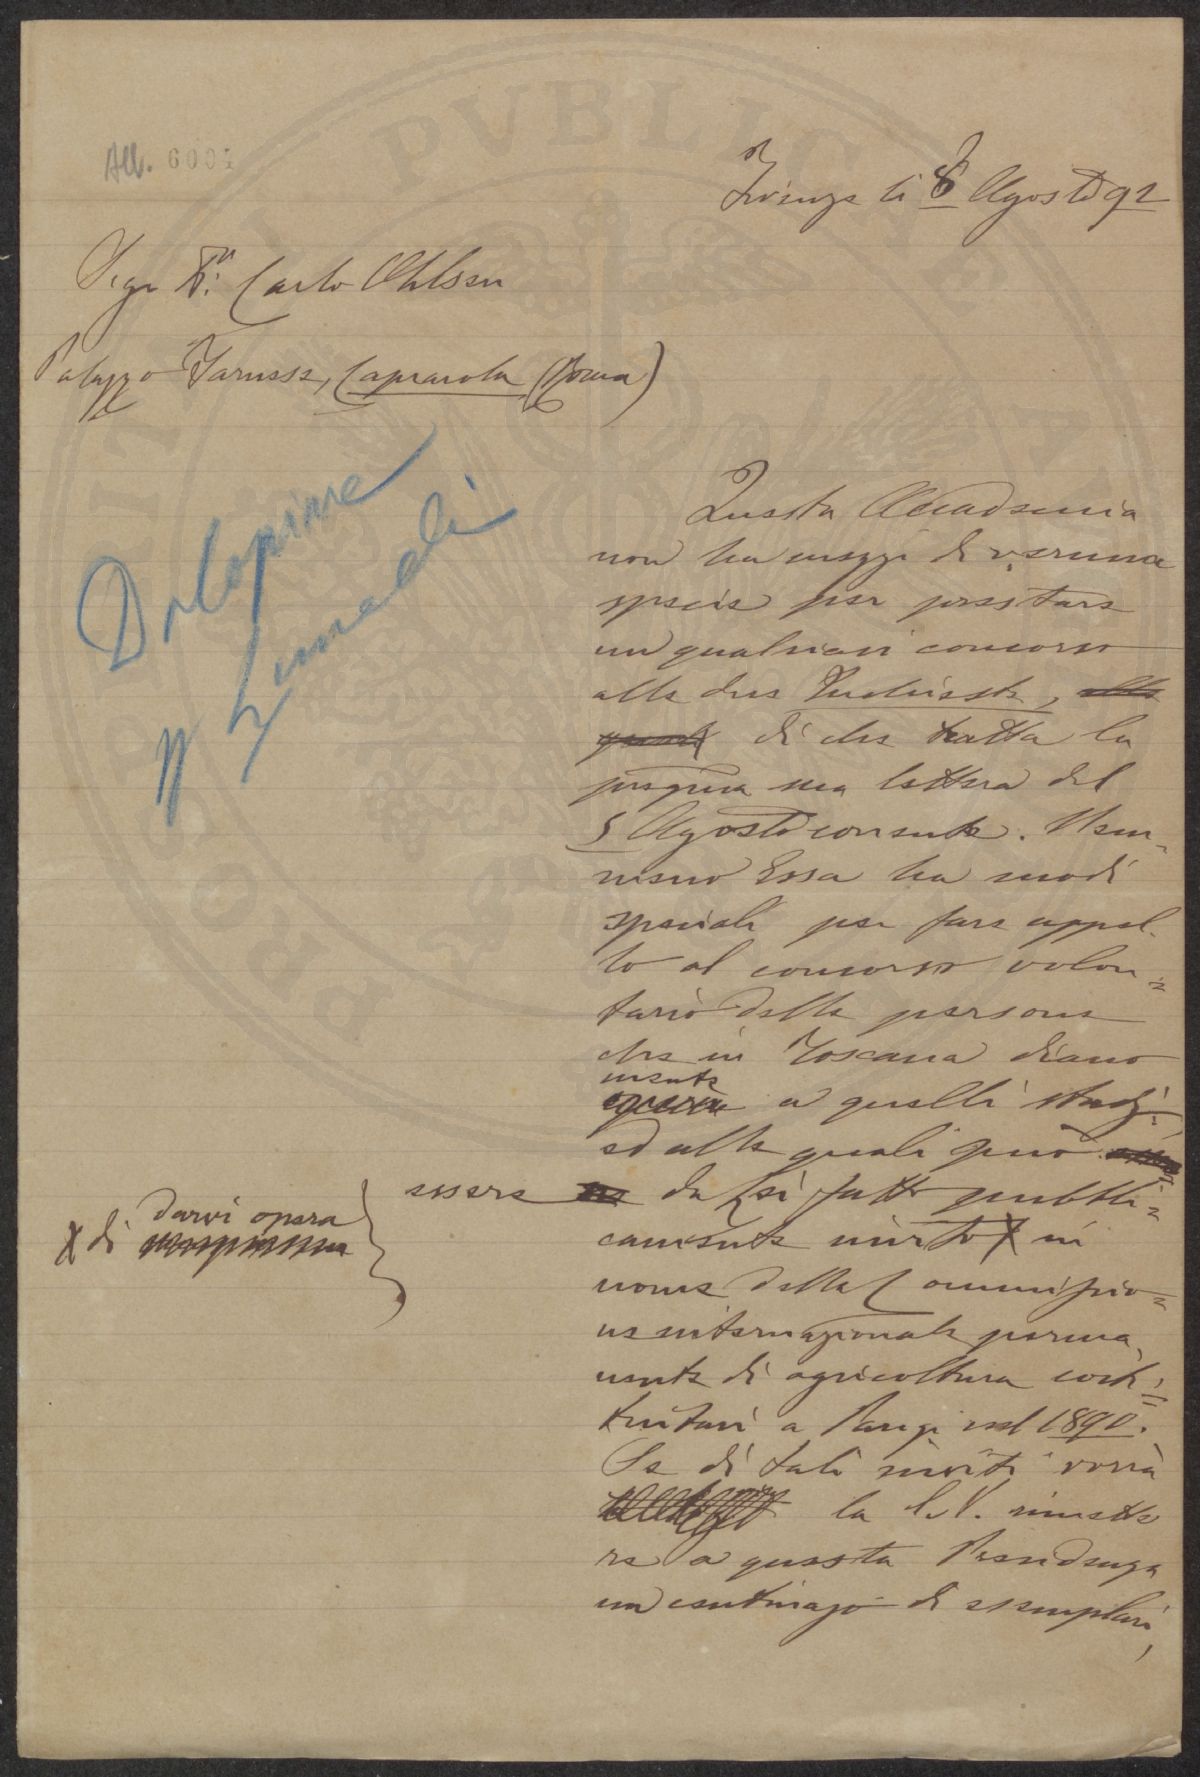 All. 6004
Firenze li 8 Agosto 92
Sigr Dr. Carlo Ohlsen
Palazzo Farnese, Caprarola (Roma)
Da Copiare
p Lunedì
Questa Accademia
non ha mezzi di veruna
specie per prestare
un qualsiasi concorso
alle due Inchieste, alle
quali di che tratta la
pregiata sua lettera del
5 Agosto corrente. Nem-
meno Essa ha modi
speciali per fare appel-
lo al concorso volon=
tario delle persone
che in Toscana diano
mente
opera a quelli studj,
ed alle quali può
essere da Lei fatto pubbli=
camente invito X in
X di darvi opera
nome della Commissio=
ne internazionale perma-
nente di agricoltura costi=
tuitasi a Parigi nel 1890.
Se di tali inviti vorrà
la S.V. rimette
re a questa Presidenza
un centinajo di esemplari,